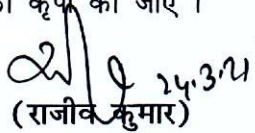 कृपा की जाए ।
24.3.21
(राजीव कुमार)